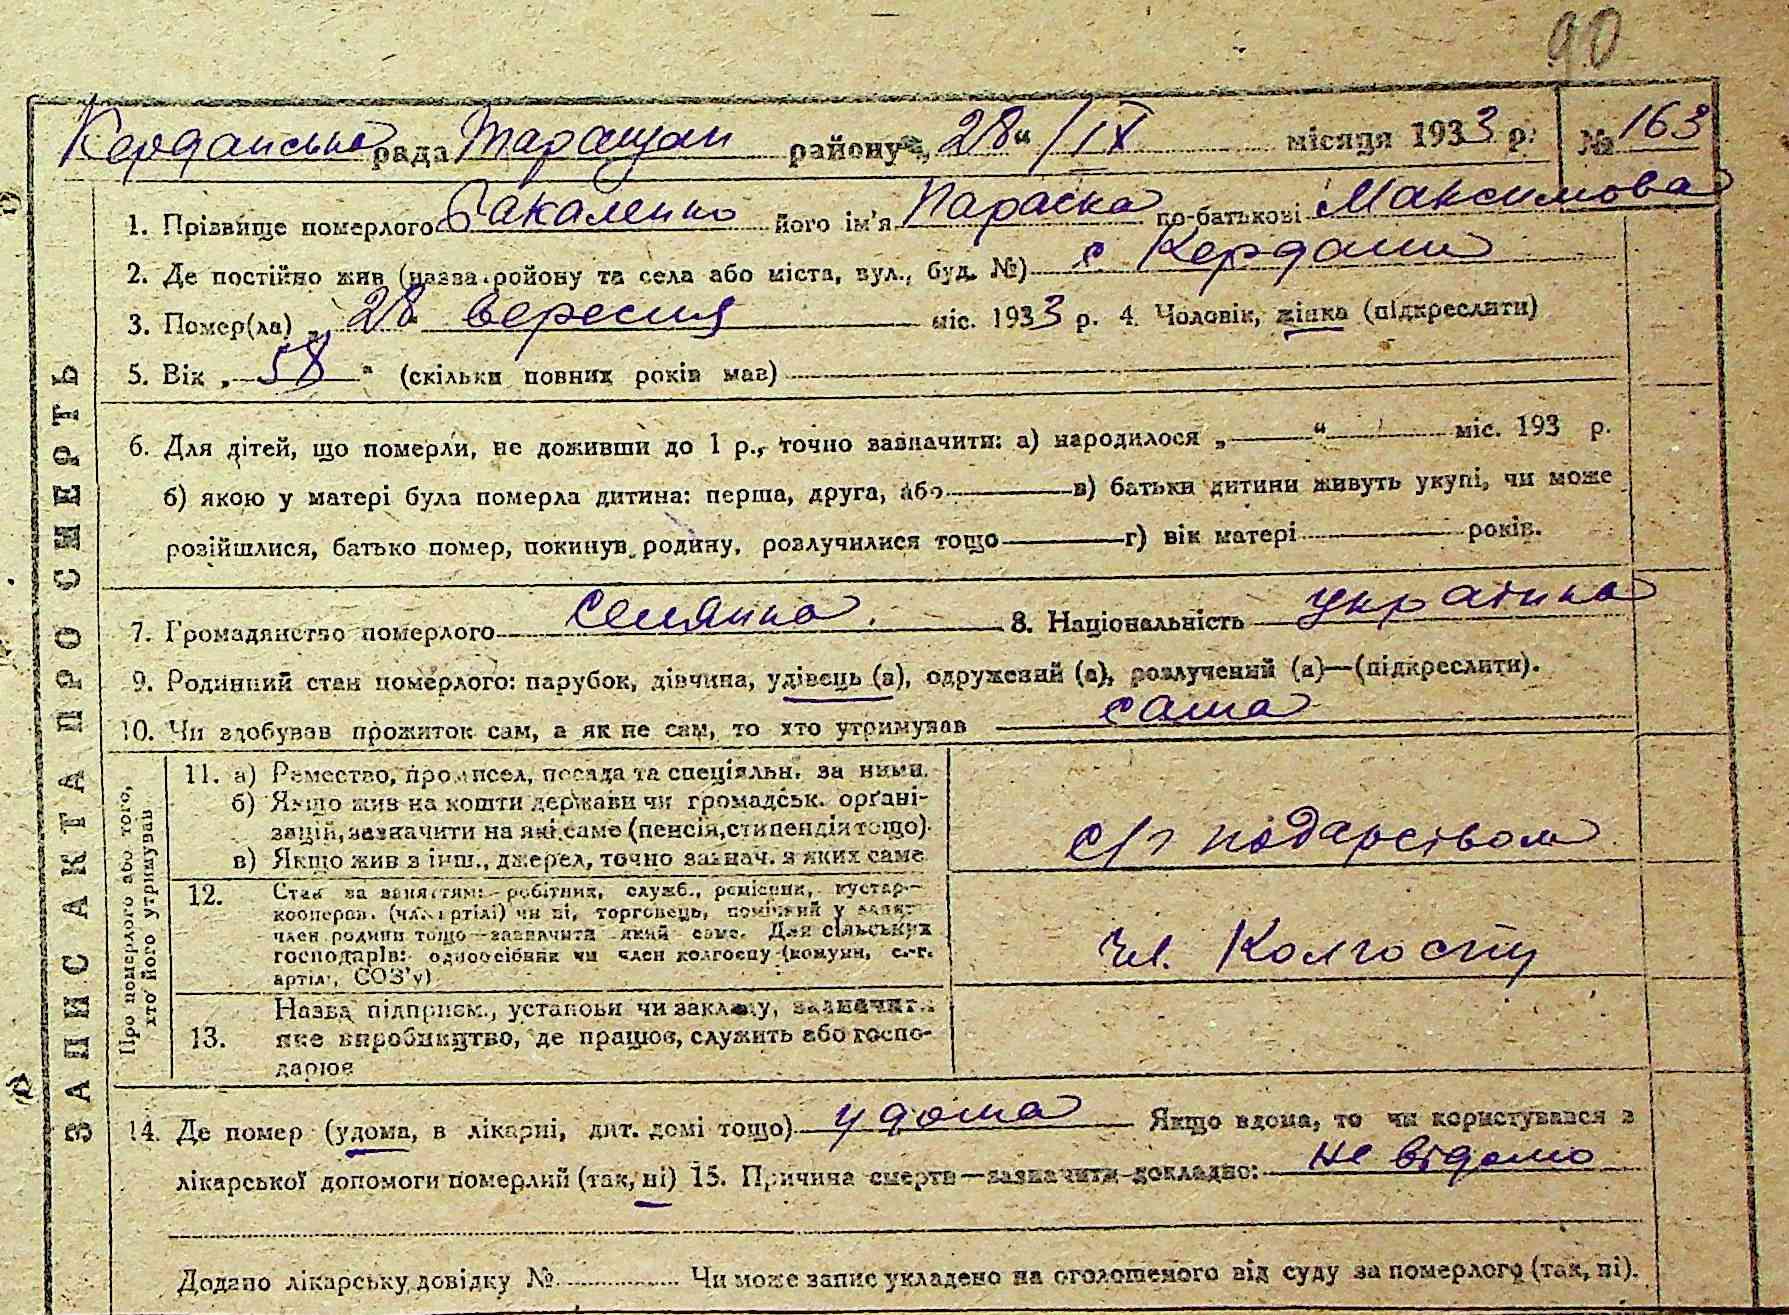 90
Керданська рада Таращан району „28“ /IX місяця 1933 р. № 163
1. Прізвище померлого Бакаленко його ім'я Параска по-батькові Максимова
2. Де постійно жив (назва району та села або міста, вул., буд. №) с Кердани
3. Помер(ла) „28“ вересня міс. 1933 р. 4. Чоловік, жінка (підкреслити)
5. Вік „58“ (скільки повних років мав)
6. Для дітей, що померли, не доживши до 1 р., точно зазначити: а) народилося „ “ міс. 193 р.
б) якою у матері була померла дитина: перша, друга, або в) батьки дитини живуть укупі, чи може
розійшлися, батько помер, покинув родину, розлучилися тощо г) вік матері років.
7. Громадянство померлого селянка. 8. Національність українка
9. Родинний стан померлого: парубок, дівчина, удівець (а), одружений (а), розлучений (а)—(підкреслити).
10. Чи здобував прожиток сам, а як не сам, то хто утримував сама
ЗАПИС АКТА ПРО СМЕРТЬ
Про померлого або того,
хто його утримував
11. а) Ремество, промисел, посада та спеціяльн. за ними.
б) Якщо жив на кошти держави чи громадськ. орґані-
зацій, зазначити на які саме (пенсія, стипендія тощо).
в) Якщо жив з інш., джерел, точно зазнач. з яких саме
с/г подарством
12. Стан за заняттям: робітник, служб., ремісник, кустар—
кооперов. (чл. артілі) чи ні, торговець, помічний у занят.
член родини тощо—зазначити який саме. Для сільських
господарів: одноосібник чи член колгоспу (комуни, с.-г.
артілі, СОЗ'у)
чл. Колгоспу
13. Назва підприєм., установи чи закладу, зазначити
яке виробництво, де працює, служить або госпо-
дарює
14. Де помер (удома, в лікарні, дит. домі тощо) удома Якщо вдома, то чи користувався з
лікарської допомоги померлий (так, ні) 15. Причина смерти—зазначити докладно: не відомо
Додано лікарську довідку № Чи може запис укладено на оголошеного від суду за померлого (так, ні).